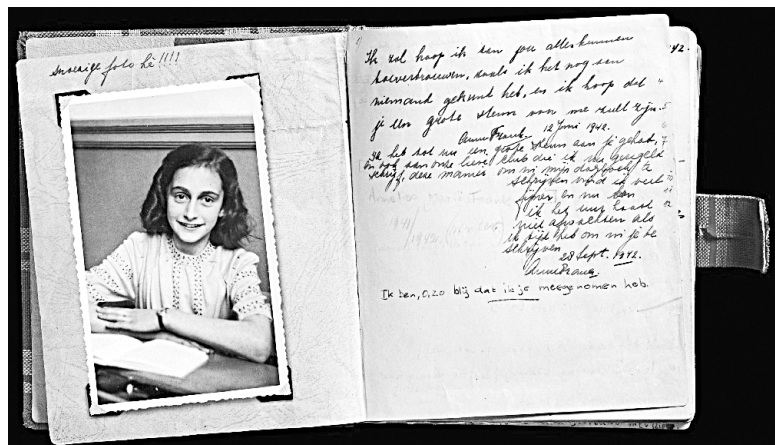 snoezige foto hè!!!!
Ik zal hoop ik aan jou alles kunnen
toevertrouwen, zoals ik het nog aan
niemand gekund heb, en ik hoop dat
je een grote steun voor me zult zijn.
Anne Frank. 12 Juni 1942.
Ik heb tot nu een grote steun aan je gehad,
en ook aan onze lieve club die ik nu geregeld
schrijf, deze manier om in mijn dagboek te
schrijven vind ik veel
fijner en nu kan
ik het uur haast
niet afwachten als
ik tijd heb om in je te
schrijven
28 Sept. 1942.
Anne Frank.
Ik ben, o, zo blij dat ik je meegenomen heb.
42.
1941/
1942.